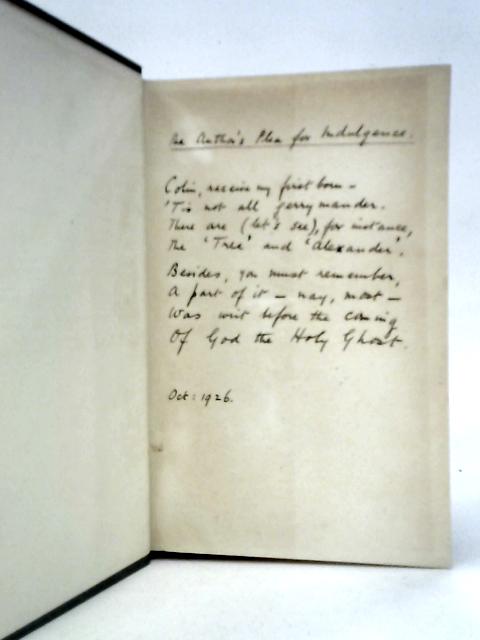 The Author's Plea for Indulgence.
Colin, receive my first born –
'Tis not all gerrymander.
There are (let's see), for instance,
The 'Tree' and 'Alexander'.
Besides, you must remember,
A part of it – nay, most –
Was writ before the coming
Of God the Holy Ghost.
Oct: 1926.